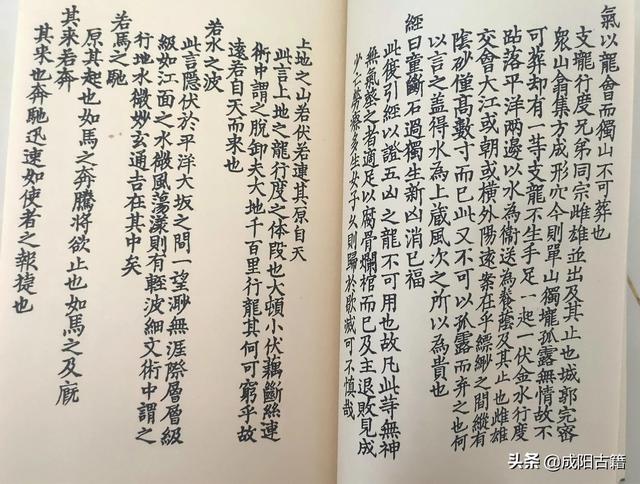 氣以龍會而獨山不可葬也
支壠行度兄弟同宗雌雄並出及其止也城郭完密
眾山翕集方成形穴今則單山獨壠孤露無情故不
可葬却有一等支龍不生手足一起一伏金水行度
跌落平洋兩邊以水為衛送為養蔭及其止也雌雄
交會大江或朝或橫外陽遠案在乎縹緲之間縱有
陰砂僅高數寸而已此又不可以孤露而弃之也何
以言之蓋得水為上藏風次之所以為貴也
經曰童斷石過獨生新凶消已福
此復引經以證五凶之龍不可用也故凡此等無神
無氣葬之者適足以腐骨爛棺而已及主退敗見成
少亡勞瘵多生女子久則歸於歇滅可不慎哉
上地之山若伏若連其原自天
此言上地之龍行度之体段也大頓小伏藕斷絲連
術中謂之脫卸夫大地千百里行龍其何可窮乎故
遠若自天而來也
若水之波
此言隱伏於平洋大坂之間一望渺無涯際層層級
級如江面之水微風蕩漾則有輕波細文術中謂之
行地水微妙玄通吉在其中矣
若馬之馳
原其起也如馬之奔騰將欲止也如馬之及廐
其來若奔
其來也奔馳迅速如使者之報捷也
头条 @成阳古籍